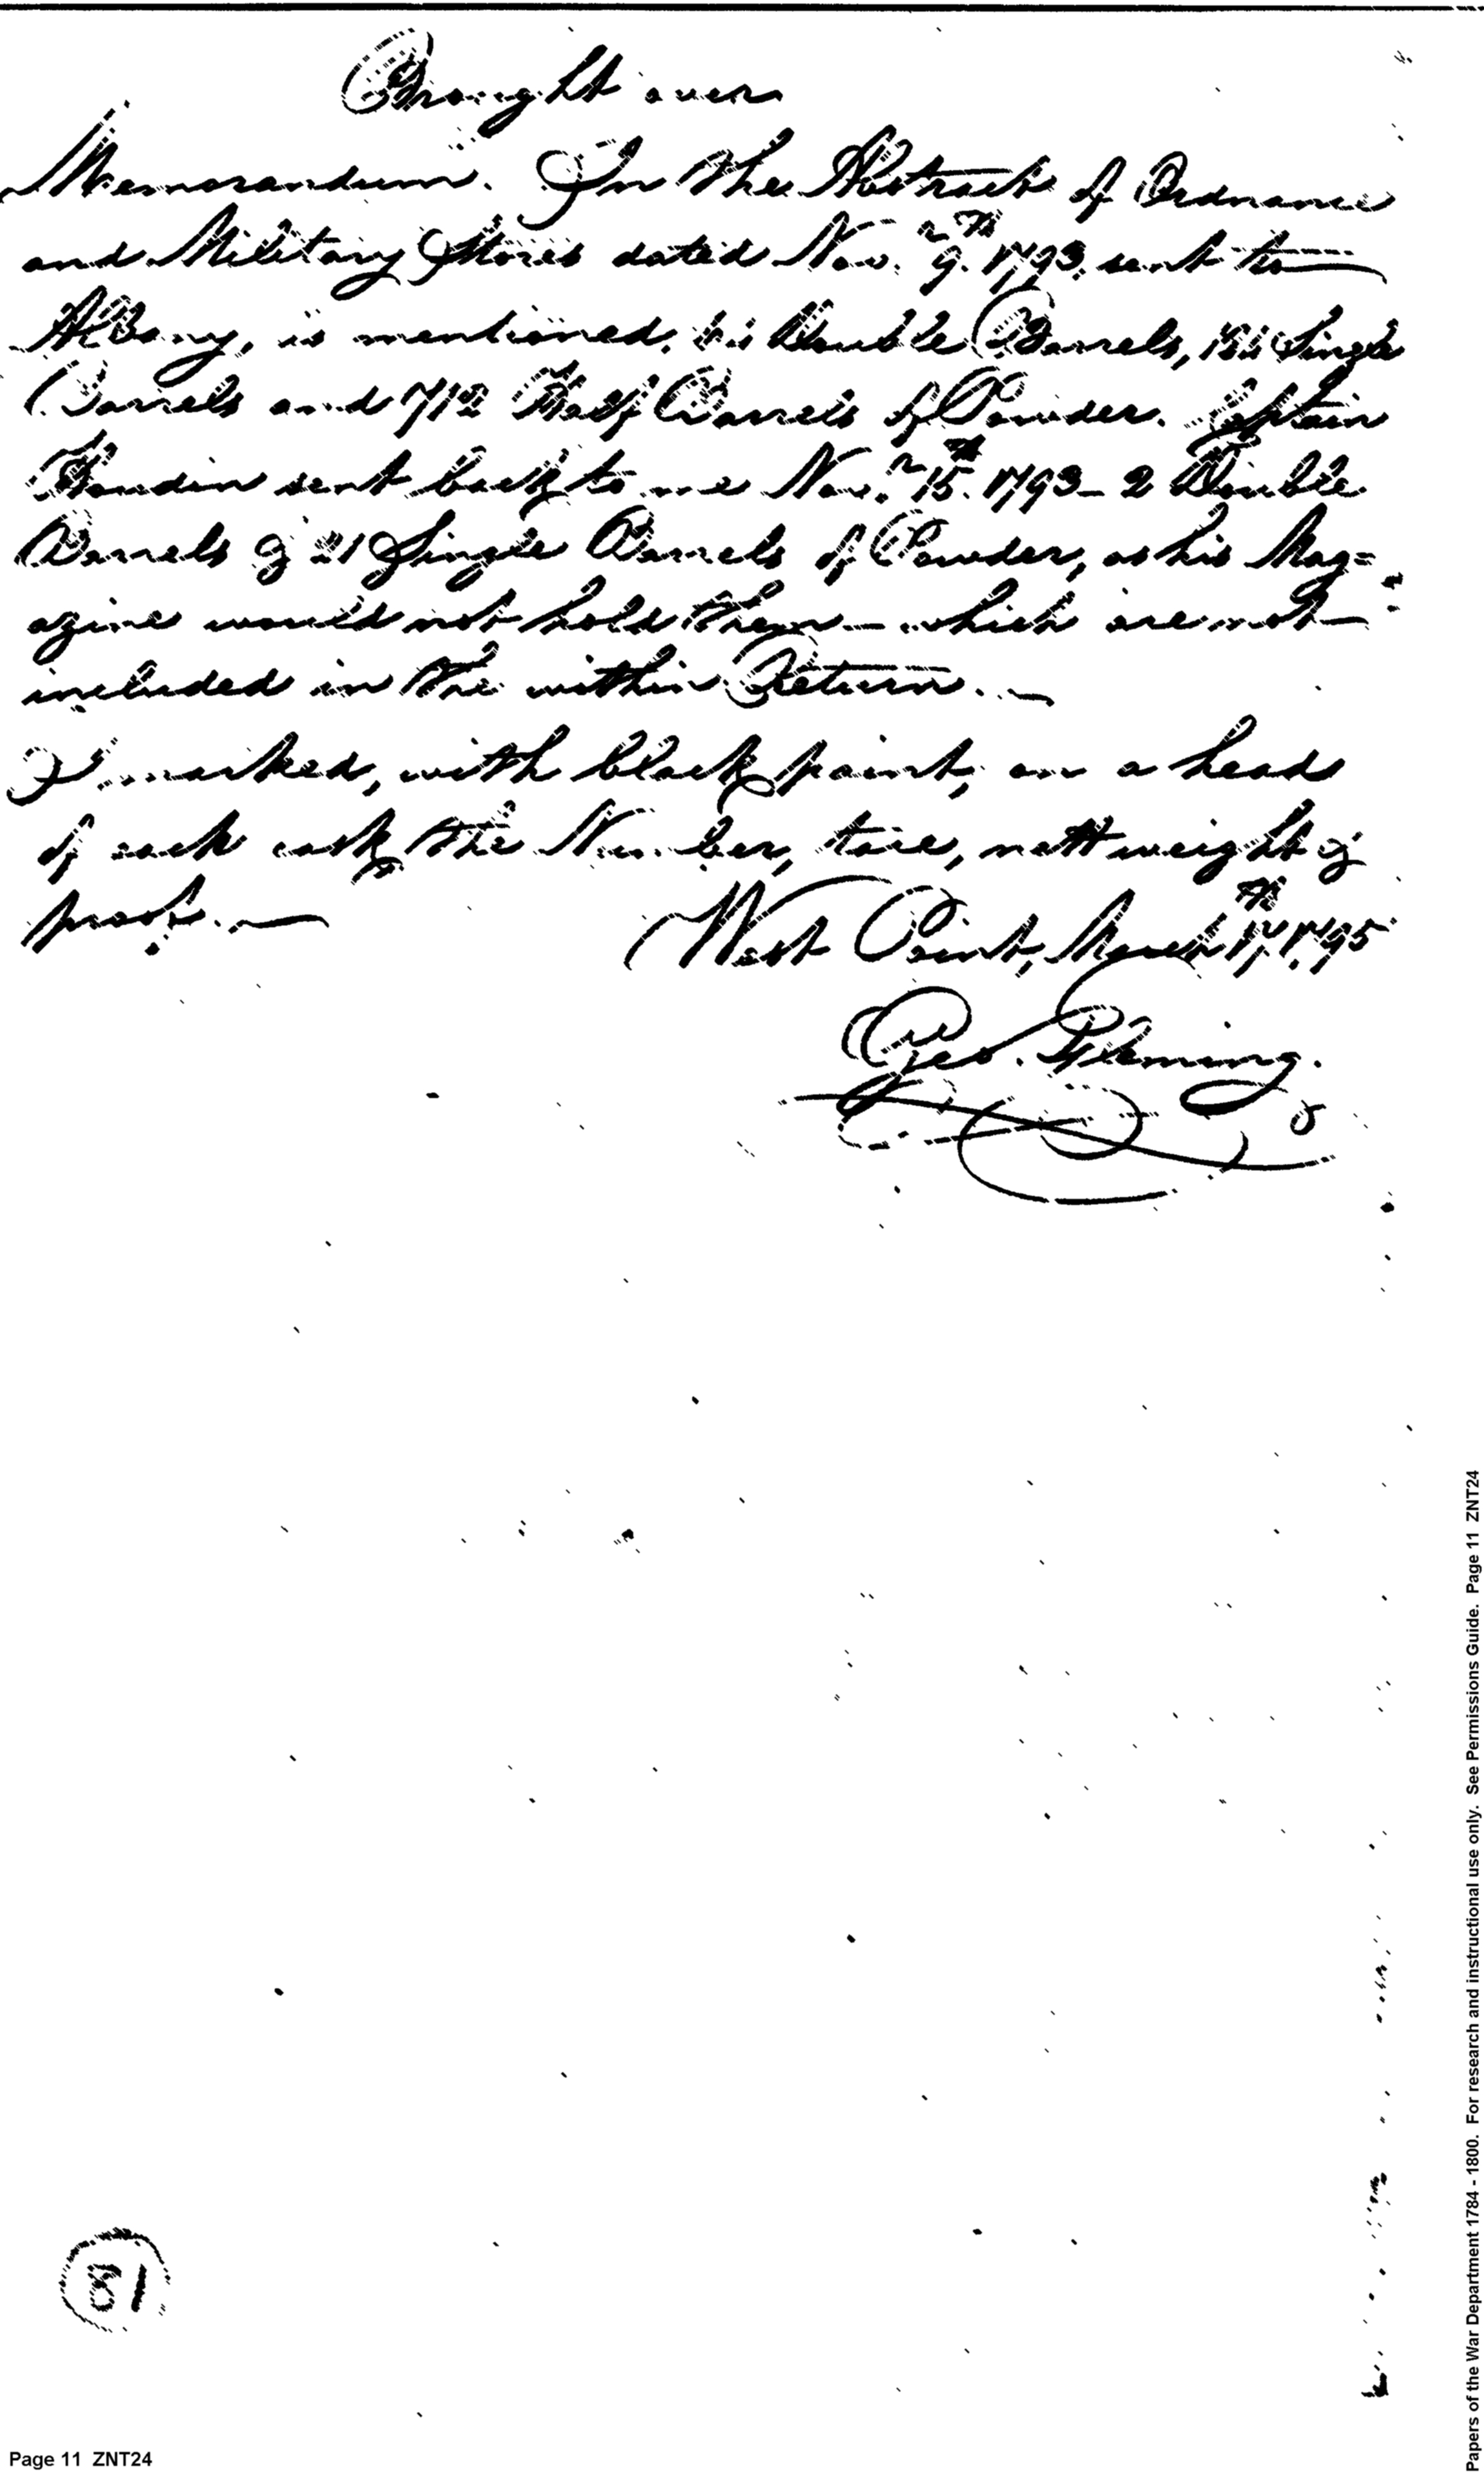 Brought over
Memorandum. In the Abstract of Ordnance
and Military Stores dated Nov.r 9.th 1793. sent to
Albany, is mentioned, Double Barrels, Single
Barrels and 712 Half Barrels of Powder. Captain
Houdin sent back to me Nov.r 15.th 1793 - 2 Double
Barrels & 21 Single Barrels of Powder, as his Mag=
azine would not hold them - which are not
included in the within Return. -
I marked, with black paint, on a head
of each cask the Number, tare, nett weight &
proof. -
West Point, March 17.th 1795
Geo. Fleming.
81
Page 11 ZNT24
Papers of the War Department 1784 - 1800. For research and instructional use only. See Permissions Guide. Page 11 ZNT24